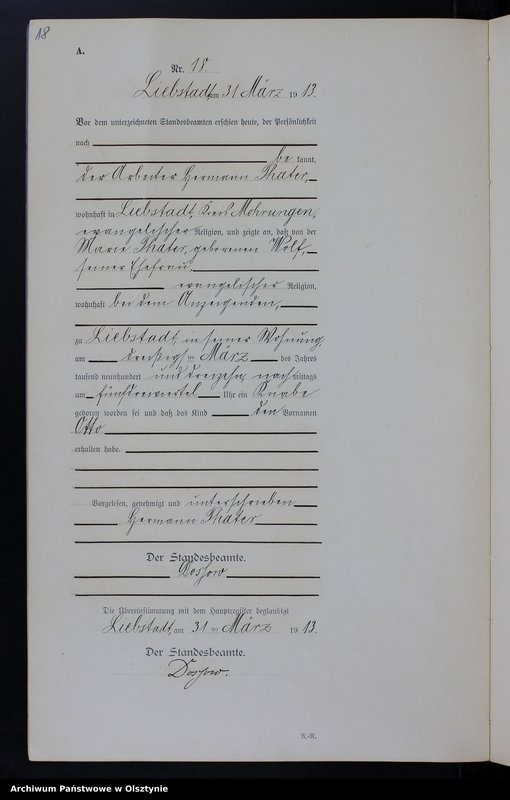 18
A.
Nr. 18.
Liebstadt am 31 März 1913.
Vor dem unterzeichneten Standesbeamten erschien heute, der Persönlichkeit
nach
be kannt,
der Arbeiter Hermann Thater,
wohnhaft in Liebstadt, Kreis Mohrungen,
evangelischer Religion, und zeigte an, daß von der
Marie Thater, geborenen Wolf,
seiner Ehefrau,
evangelischer Religion,
wohnhaft bei dem Anzeigenden,
zu Liebstadt, in seiner Wohnung,
am dreißigsten März des Jahres
tausend neunhundert und dreizehn, nachmittags
um fünfdreiviertel Uhr ein Knabe
geboren worden sei und daß das Kind den Vornamen
Otto
erhalten habe.
Vorgelesen, genehmigt und unterschrieben
Hermann Thater
Der Standesbeamte.
Dossow
Die Übereinstimmung mit dem Hauptregister beglaubigt
Liebstadt, am 31 ten März 1913.
Der Standesbeamte.
Dossow.
N.-R.
Archiwum Państwowe w Olsztynie